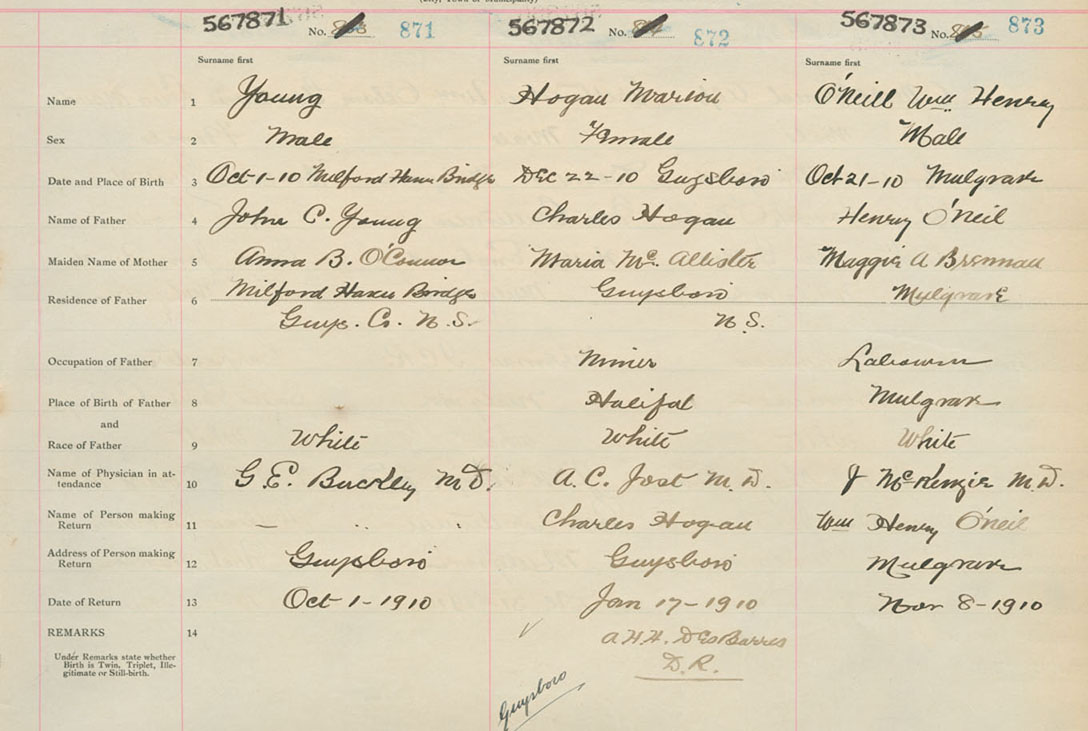 (City, Town or Municipality)
567871 No. 871 567872 No. 872 567873 No. 873
Surname first Surname first Surname first
Name 1 Young Hogan Marion O'Neill Wm Henry
Sex 2 Male Female Male
Date and Place of Birth 3 Oct 1-10 Milford Haven Bridge DEC 22-10 Guysboro Oct 21-10 Mulgrave
Name of Father 4 John C. Young Charles Hogan Henry O'Neil
Maiden Name of Mother 5 Anna B. O'Connor Maria Mc Allister Maggie A Brennan
Residence of Father 6 Milford Haven Bridge Guysboro Mulgrave
Guys. Co. N.S. N.S.
Occupation of Father 7 Miner Labourer
Place of Birth of Father 8 Halifax Mulgrave
and
Race of Father 9 White White White
Name of Physician in at-
tendance 10 G. E. Buckley M.D. A. C. Jost M.D. J McKenzie M.D.
Name of Person making
Return 11 — " " Charles Hogan Wm Henry O'neil
Address of Person making
Return 12 Guysboro Guysboro Mulgrave
Date of Return 13 Oct 1-1910 Jan 17-1910 Nov 8-1910
REMARKS 14 A.H.H. DesBarres
D.R.
Under Remarks state whether
Birth is Twin, Triplet, Ille-
gitimate or Still-birth.
Guysboro